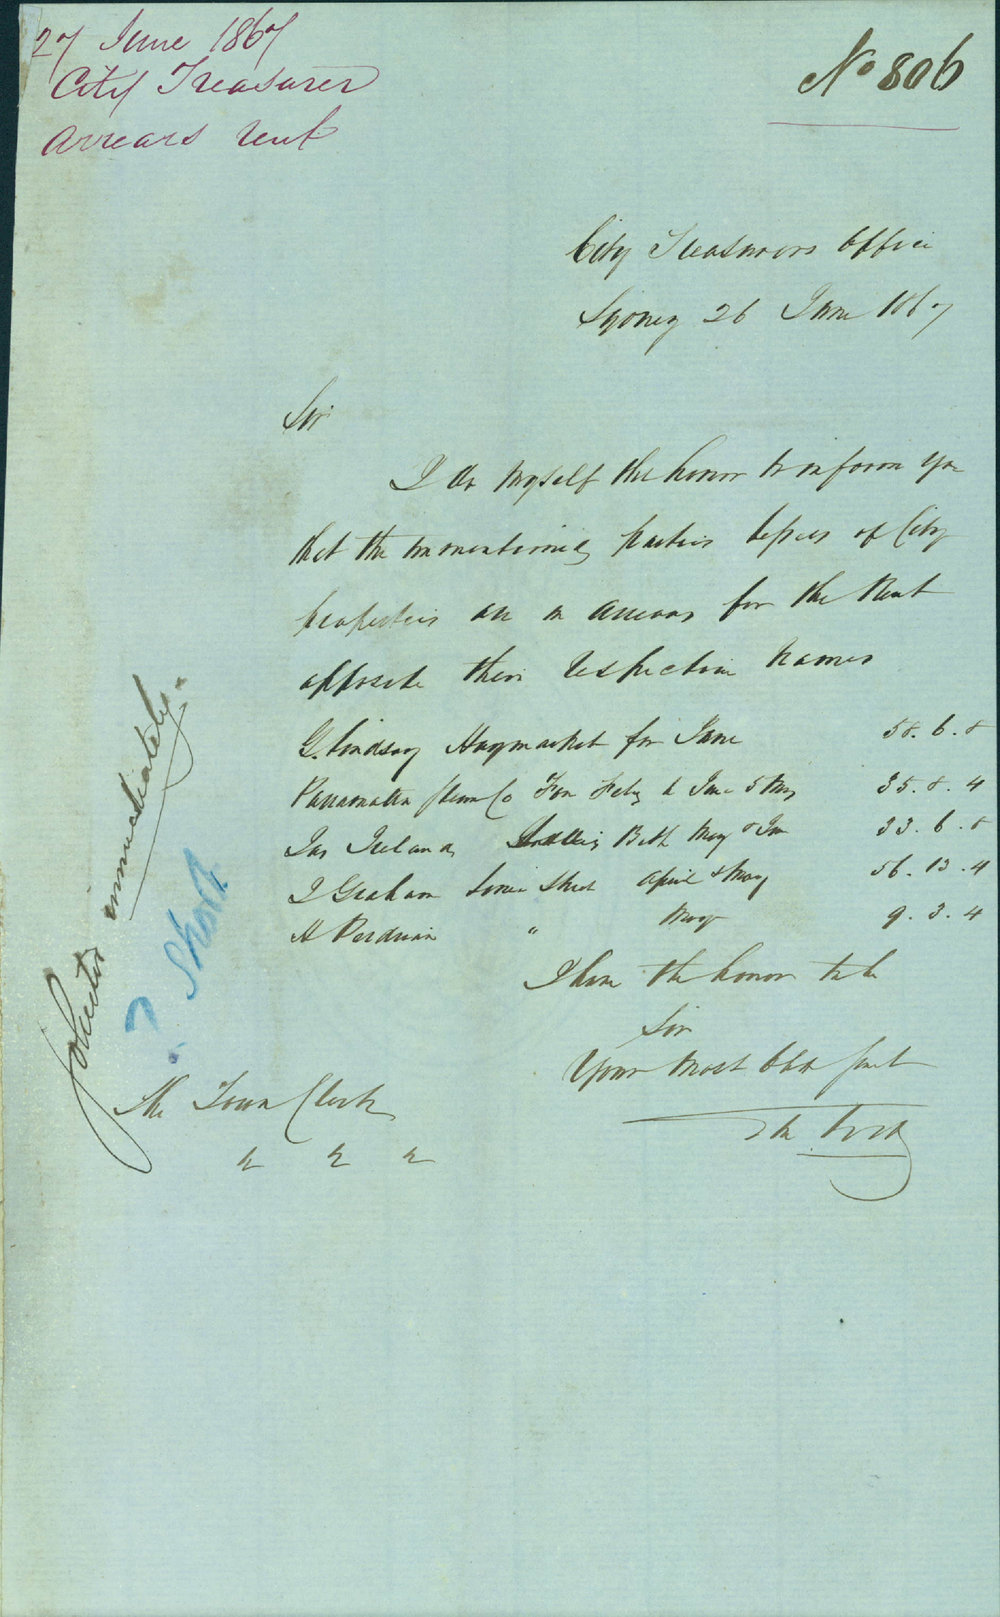 27 June 1867
City Treasurer
Arrears Rent
No 806
City Treasurers Office
Sydney 26 June 1867
Sir
I do myself the honor to inform you
that the parties Lessees of City
properties are in arrears for the Rent
opposite their respective names
G. Lindsay Haymarket for June 58.6.8
Parramatta Steam Co For Feby to June 5 Mos 35.8.4
Jas Ireland Bath May & Jun 33.6.8
J Graham Street April & May 56.13.4
H Perdriau " May 9.3.4
I have the honor to be
Sir
Your most Obdt Servt
The Town Clerk
Solicitor immediately.
? Short